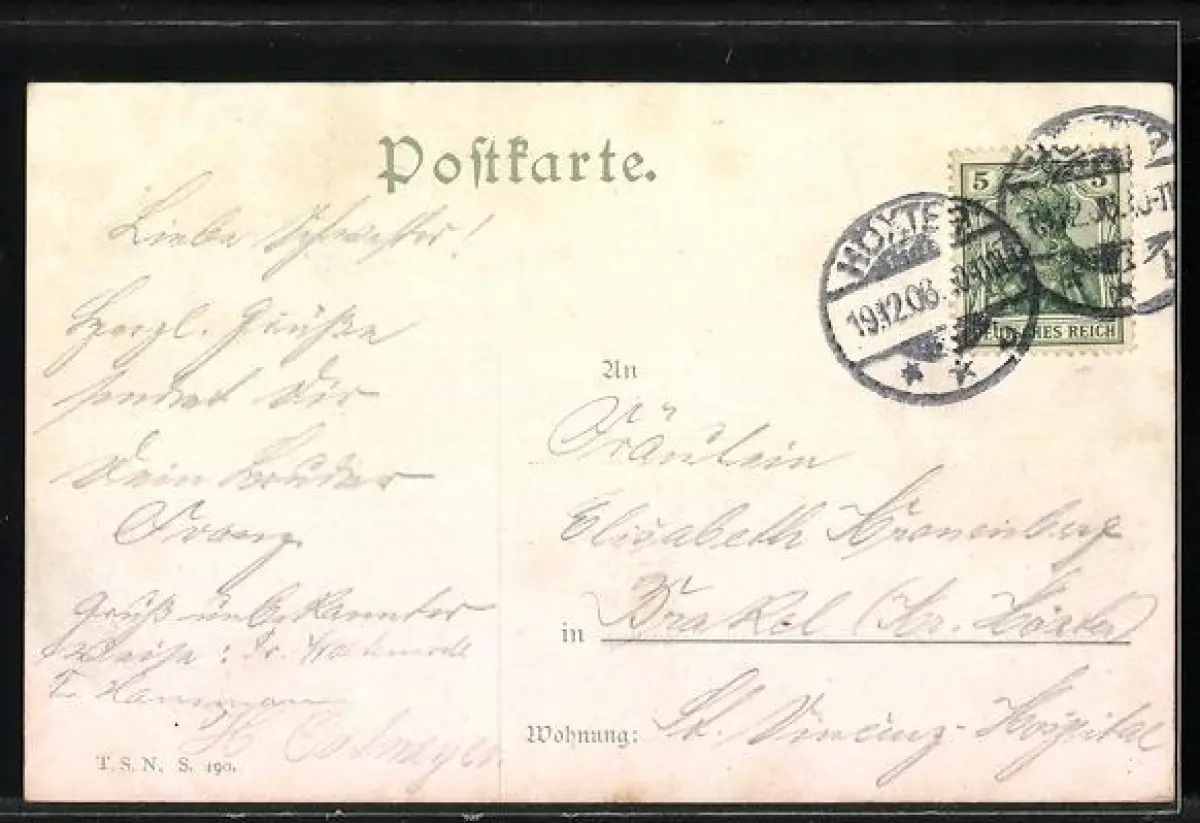 Postkarte.
Liebe Schwester!
Herzl. Grüße
sendet Dir
Dein Bruder
Franz.
Gruß unbekannter
Weise: Fr.
H. Ostmeyer.
T. S. N. S. 190.
5 5
DEUTSCHES REICH
HÖXTER
19.12.08.
An
Fräulein
Elisabeth Kronenberg
in Brakel (Kr. Höxter)
Wohnung: St. Vincenz-Hospital